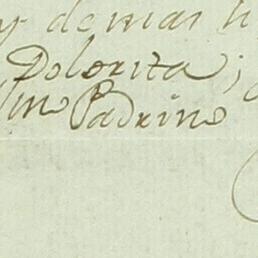 y demas
Dolorita;
Padrino